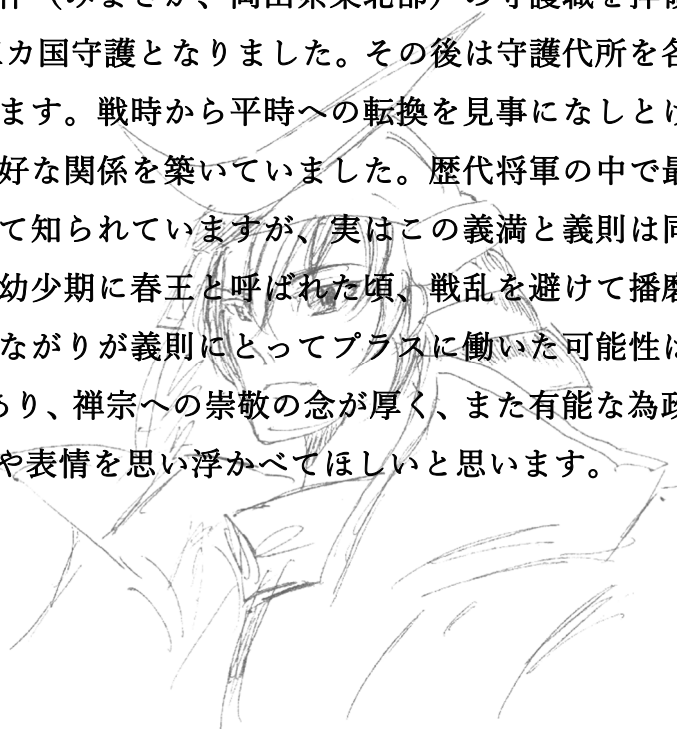 （みまさか、岡山県東北部）の守護職を拝
カ国守護となりました。その後は守護代所を各
ます。戦時から平時への転換を見事になしとげ
好な関係を築いていました。歴代将軍の中で最
て知られていますが、実はこの義満と義則は同
幼少期に春王と呼ばれた頃、戦乱を避けて播磨
ながりが義則にとってプラスに働いた可能性は
あり、禅宗への崇敬の念が厚く、また有能な為政
や表情を思い浮かべてほしいと思います。